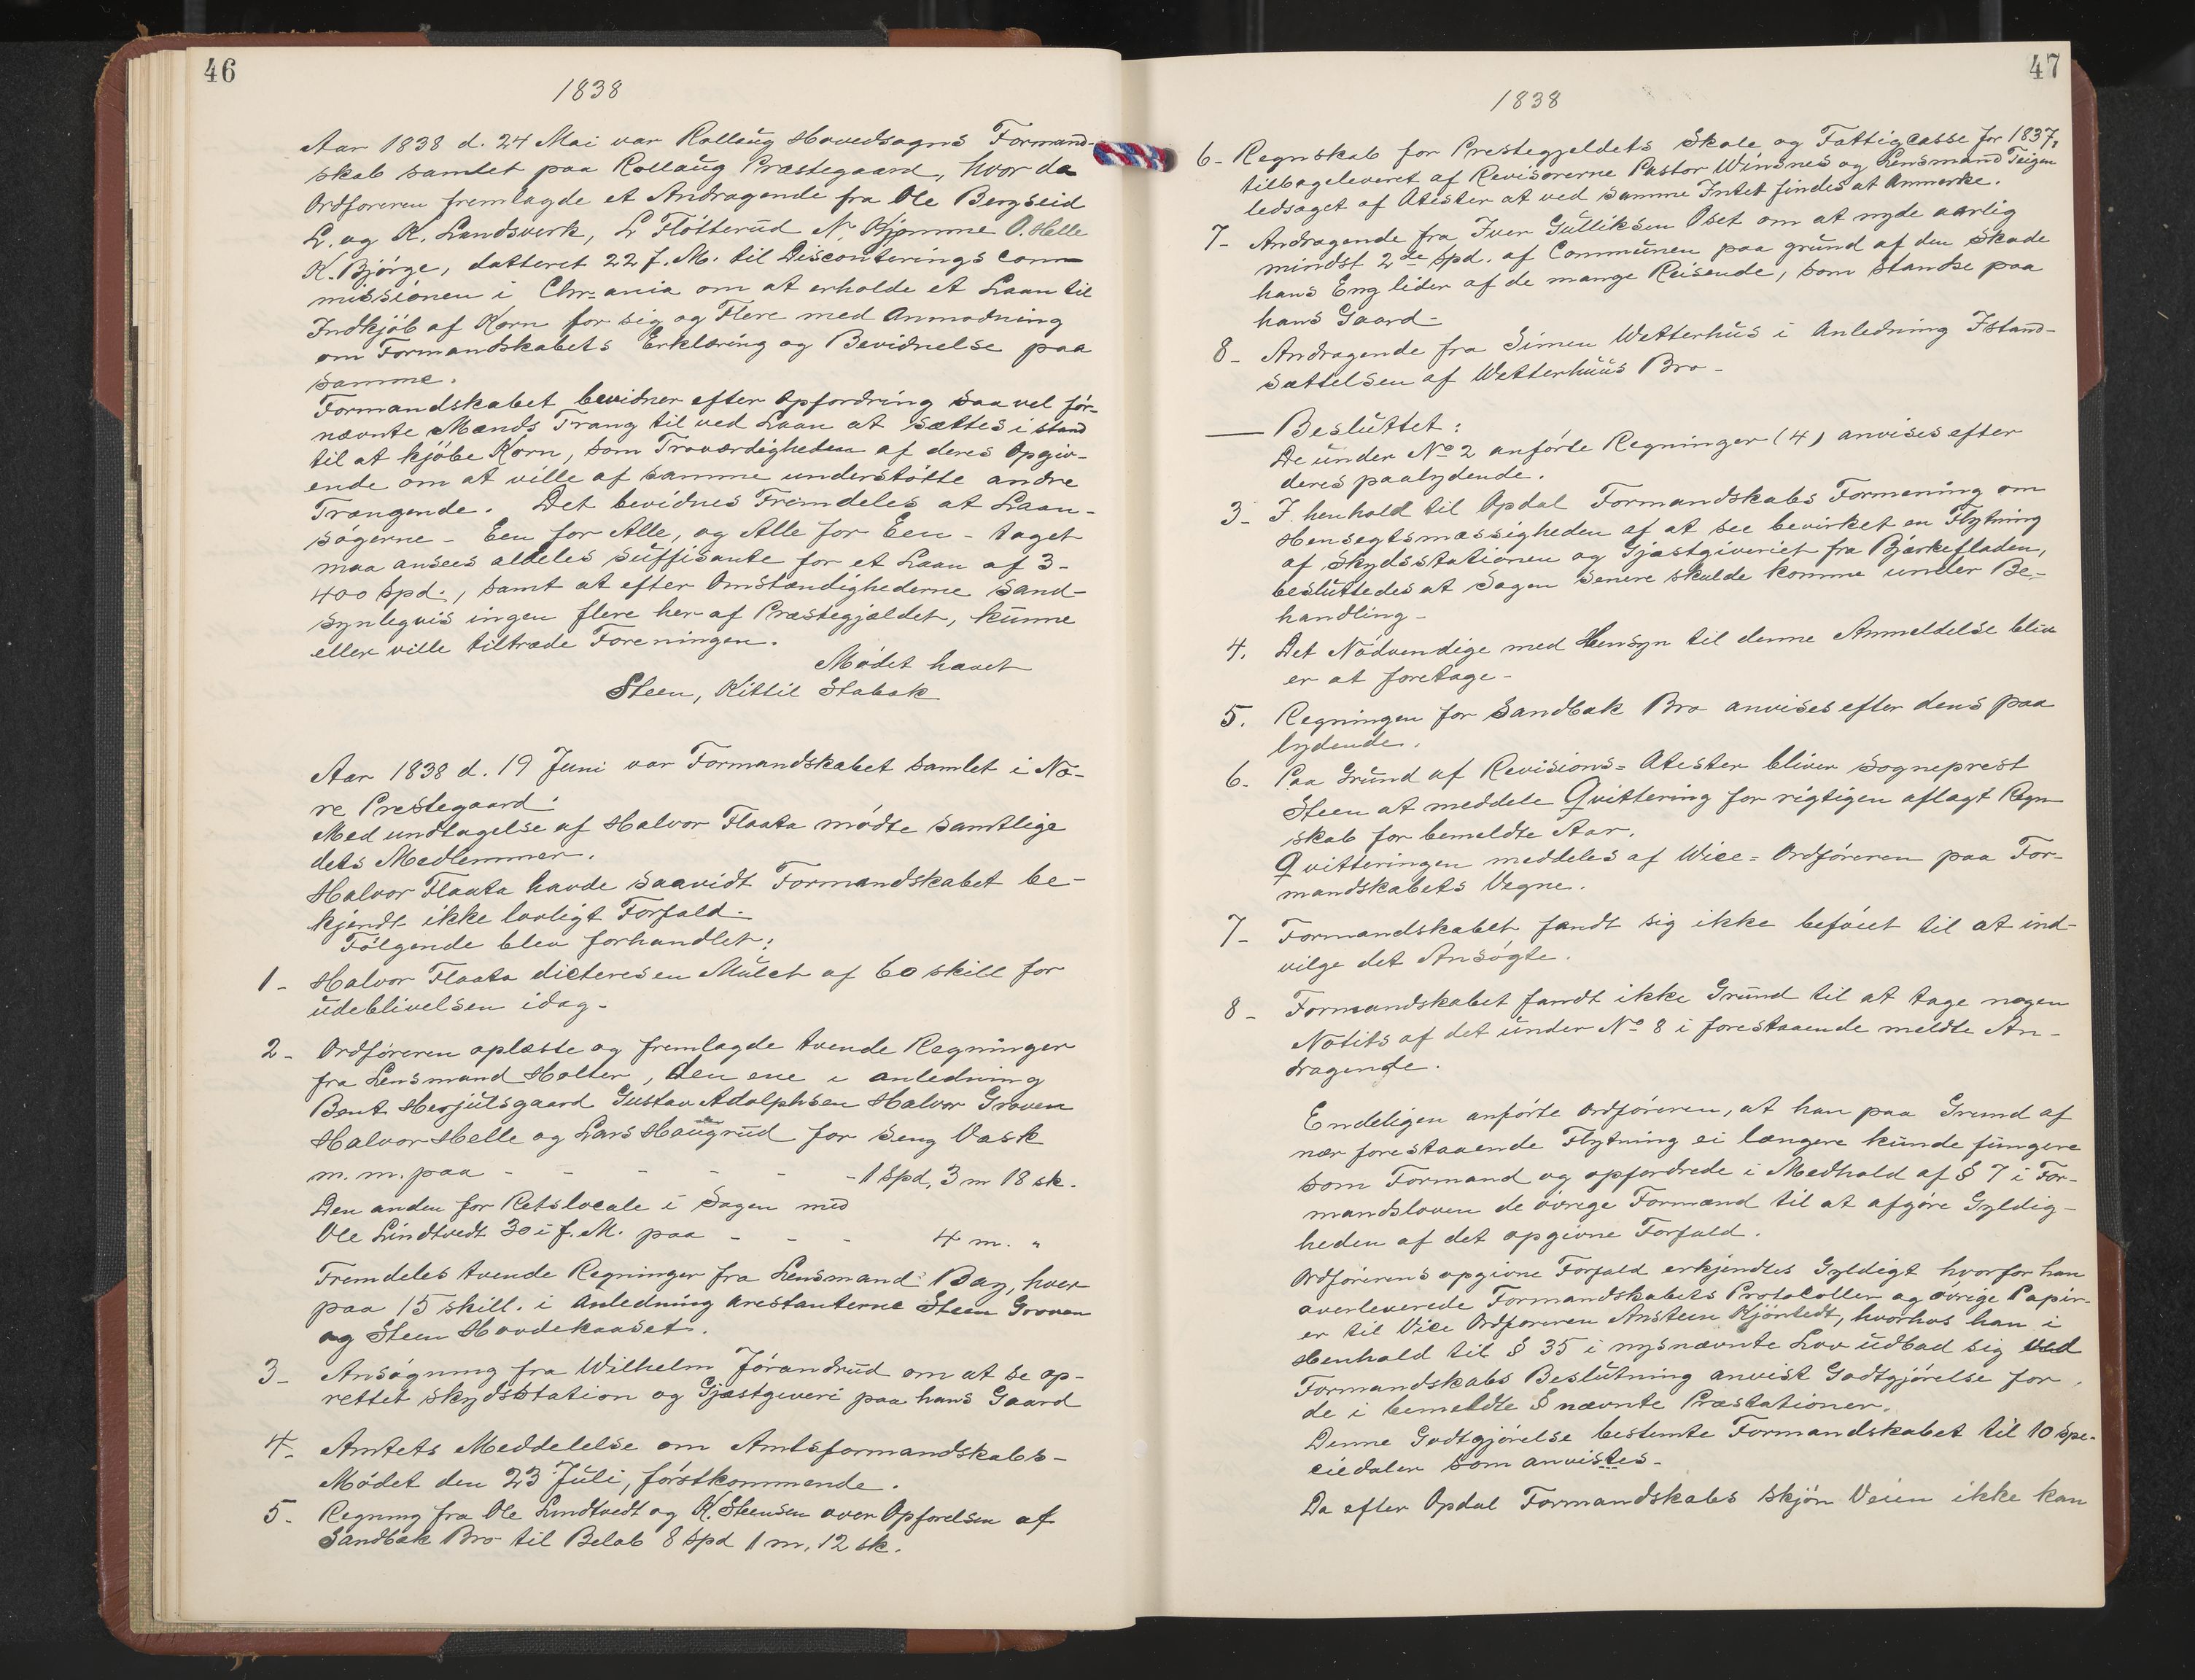 46
1838
Aar 1838 d. 24 Mai var Rollaug Hovedsogns Formand-
skab samlet paa Rollaug Præstegaard, hvor da
Ordføreren fremlagde et Andragende fra Ole Bergseid
L. og K. Landsverk, L Fløtterud N. Kjømme O. Helle
K. Bjørge, datteret 22 f. M. til Disconterings com-
missionen i Chr.ania om at erholde et Laan til
Indkjøb af Korn for sig og Flere med Anmodning
om Formandskabets Erklæring og Bevidnelse paa
samme.
Formandskabet bevidner efter Opfordring saa vel før-
nævnte Mænds Trang til ved Laan at sættes i stand
til at kjøbe Korn, som Troværdigheden af deres Opgiv-
ende om at ville af samme understøtte andre
Trængende. Det bevidnes Fremdeles at Laan-
søgerne - Een for Alle, og Alle for Een - taget
maa ansees aldeles suffisante for et Laan af 3-
400 Spd., samt at efter Omstændighederne sand-
synlegvis ingen flere her af Præstegjældet, kunne
eller ville tiltræde Foreningen.
Mødet hævet
Steen, Kittil Stabak
Aar 1838 d. 19 Juni var Formandskabet samlet i No-
re Prestegaard.
Med undtagelse af Halvor Flaata mødte samtlige
dets Medlemmer.
Halvor Flaata havde saavidt Formandskabet be-
kjendt ikke lovligt Forfald.
Følgende blev forhandlet:
1 - Halvor Flaata dicteres en Mulct af 60 skill for
udeblivelsen idag -
2 - Ordføreren oplæste og fremlagde tvende Regninger
fra Lensmand Holter, den ene i anledning
Bent Herjulsgaard Gustav Adolphsen Halvor Groven
Halvor Helle og Lars Haugrud for Seng Vask
m. m. paa - - - - - - 1 Spd, 3 m 18 sk.
Den anden for Retslocale i Sagen med
Ole Lindtvedt 30 i f. M. paa - - - 4 m. "
Fremdeles tvende Regninger fra Lensmand Bay, hver
paa 15 skill. i Anledning arestanterne Steen Groven
og Steen Hovdekaaset.
3 - Ansøgning fra Wilhelm Jørandrud om at se op-
rettet skydsstation og Gjæstgiveri paa hans Gaard
4 - Amtets Meddelelse om Amtsformandskabs-
Mødet den 23 Juli, førstkommende.
5 - Regning fra Ole Lindtvedt og K. Steensen over Opførelsen af
Sandbak Bro til Beløb 8 Spd 1 m, 12 sk.
47
1838
6 - Regnskab for Prestegjeldets Skole og Fattigcasse for 1837,
tilbageleveret af Revisorerne Pastor Winsnes og Lensmand Teigen
ledsaget af Atester at ved samme Intet findes at Anmerke.
7 - Andragende fra Iver Gulliksen Oset om at nyde aarlig
mindst 2de Spd. af Communen paa grund af den Skade
hans Eng lider af de mange Reisende, som standse paa
hans Gaard -
8 - Andragende fra Simen Wetterhus i Anledning Istand-
sættelsen af Wetterhuus Bro -
Besluttet:
De under No 2 anførte Regninger (4) anvises efter
deres paalydende.
3 - I. henhold til Opdal Formandskabs Formening om
Hensegtsmæssigheden af at see bevirket en Flytning
af Skydsstationen og Gjæstgiveriet fra Bjærkefladen,
besluttedes at Sagen senere skulde komme under Be-
handling -
4. Det Nødvendige med Hensyn til denne Anmeldelse bliv
er at foretage -
5. Regningen for Sandbak Bro anvises efter dens paa
lydende.
6 - Paa Grund af Revisions= Atester bliver Sogneprest
Steen at meddele Qvittering for rigtigen aflagt Regn
skab for bemeldte Aar.
Qvitteringen meddeles af Wice= Ordføreren paa For-
mandskabets Vegne.
7 - Formandskabet fandt sig ikke beføiet til at ind-
vilge det Ansøgte.
8 - Formandskabet fandt ikke Grund til at tage nogen
Notits af det under No 8 i forestaaende meldte An-
dragende.
Endeligen anførte Ordføreren, at han paa Grund af
nær forestaaende Flytning ei længere kunde fungere
som Formand og opfordrede i Medhold af § 7 i For-
mandsloven de øvrige Formænd til at afgjøre Gyldig-
heden af det opgivne Forfald.
Ordførerens opgivne Forfald erkjendtes Gyldigt hvorfor han
overleverede Formandskabets Protocoller og øvrige Papir-
er til Vice Ordføreren Ansteen Kjøntedt, hvorhos han i
Henhold til § 35 i nysnævnte Lov udbad sig ved
Formandskabs Beslutning anvist Godtgjørelse for
de i bemeldte § nævnte Præstationer.
Denne Godtgjørelse bestemte Formandskabet til 10 Spe-
ciedaler som anvistes -
Da efter Opdal Formandskabs Skjøn Veien ikke kan